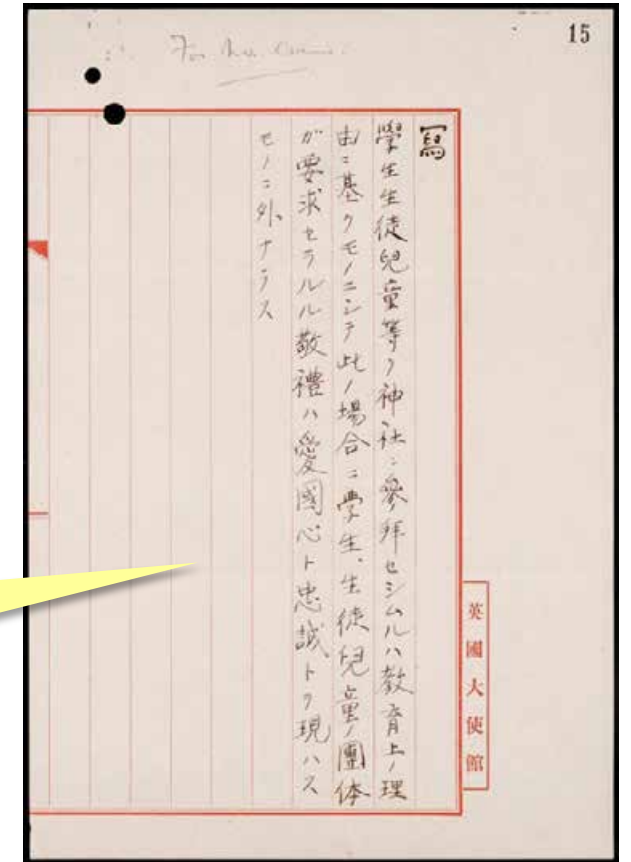 15
寫
學生生徒兒童等ヲ神社ニ參拜セシムルハ教育上ノ理
由ニ基クモノニシテ此ノ場合ニ学生、生徒兒童ノ團体
ガ要求セラルル敬禮ハ愛國心ト忠誠トヲ現ハス
モノニ外ナラス
英國大使館